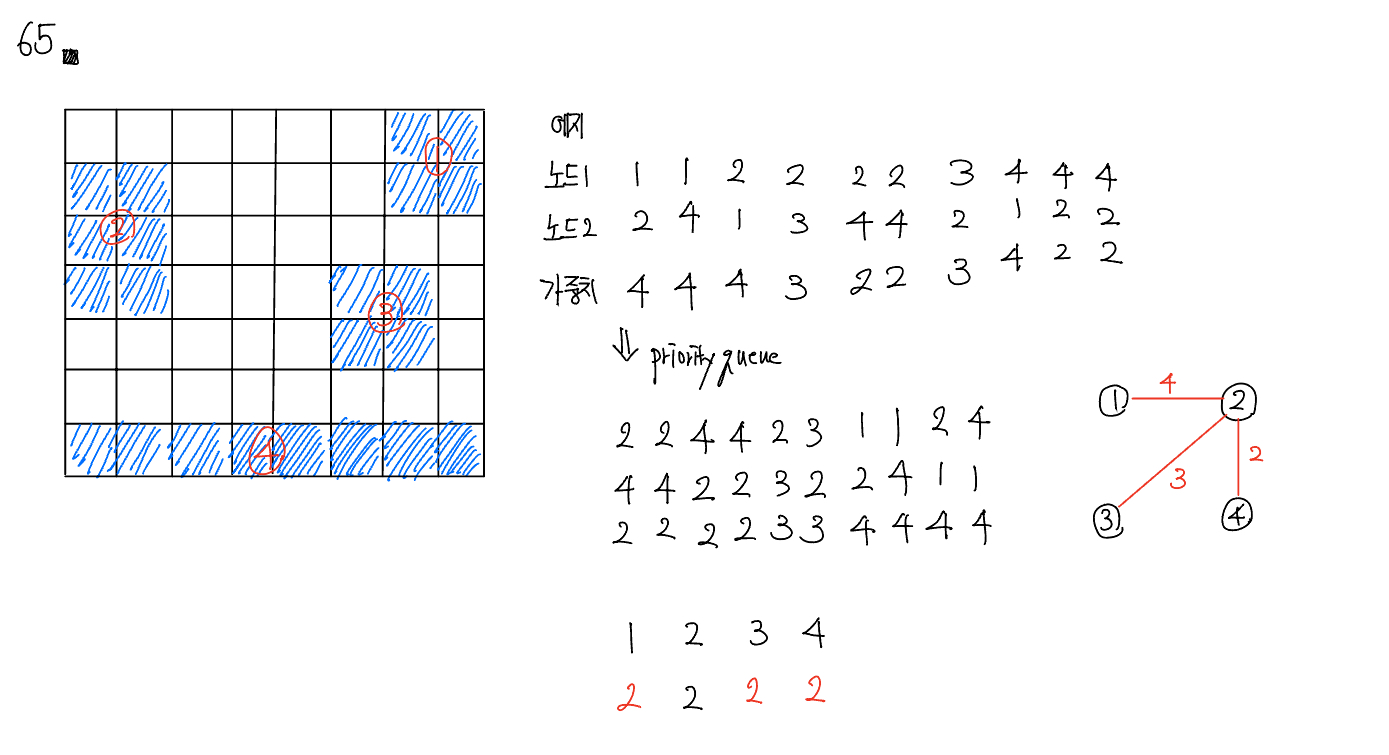 65
①
②
③
④
에지
노드1 1 1 2 2 2 2 3 4 4 4
노드2 2 4 1 3 4 4 2 1 2 2
가중치 4 4 4 3 2 2 3 4 2 2
⇓ priority queue
2 2 4 4 2 3 1 1 2 4
4 4 2 2 3 2 2 4 1 1
2 2 2 2 3 3 4 4 4 4
① 4 ②
3 2
③ ④
1 2 3 4
2 2 2 2